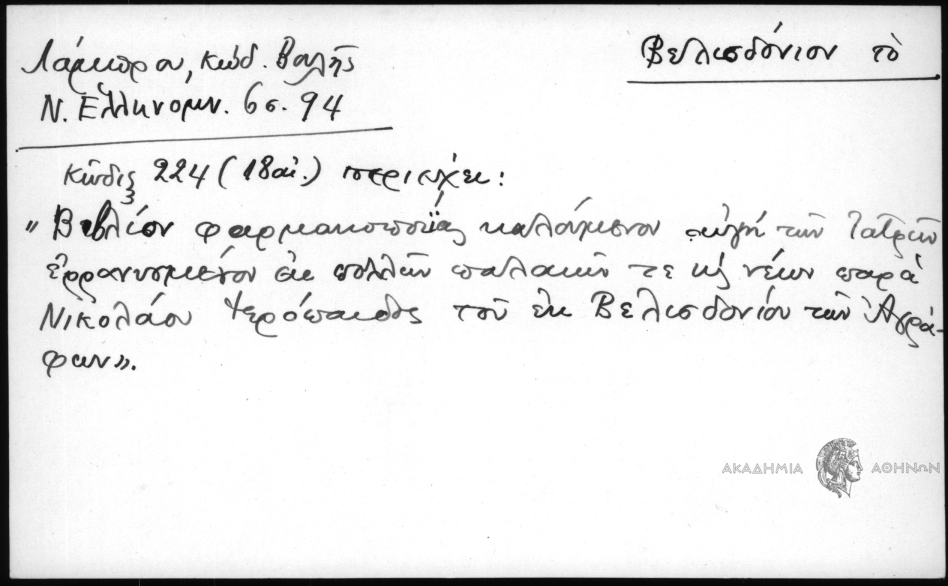 Λάμπρου, κώδ. Βουλῆς
Ν. Ἑλληνομν. 6 σ. 94
Βελισδόνιον τὸ
Κῶδιξ 224 (18 αἰ.) περιέχει:
«Βιβλίον φαρμακοποιΐας καλούμενον πηγὴ τῶν Ἰατρῶν
ἐρρανισμένον ἐκ πολλῶν παλαιῶν τε κὴ νέων παρὰ
Νικολάου Ἱερόπαιδος τοῦ ἐκ Βελισδονίου τῶν Ἀγρά-
φων».
ΑΚΑΔΗΜΙΑ ΑΘΗΝΩΝ